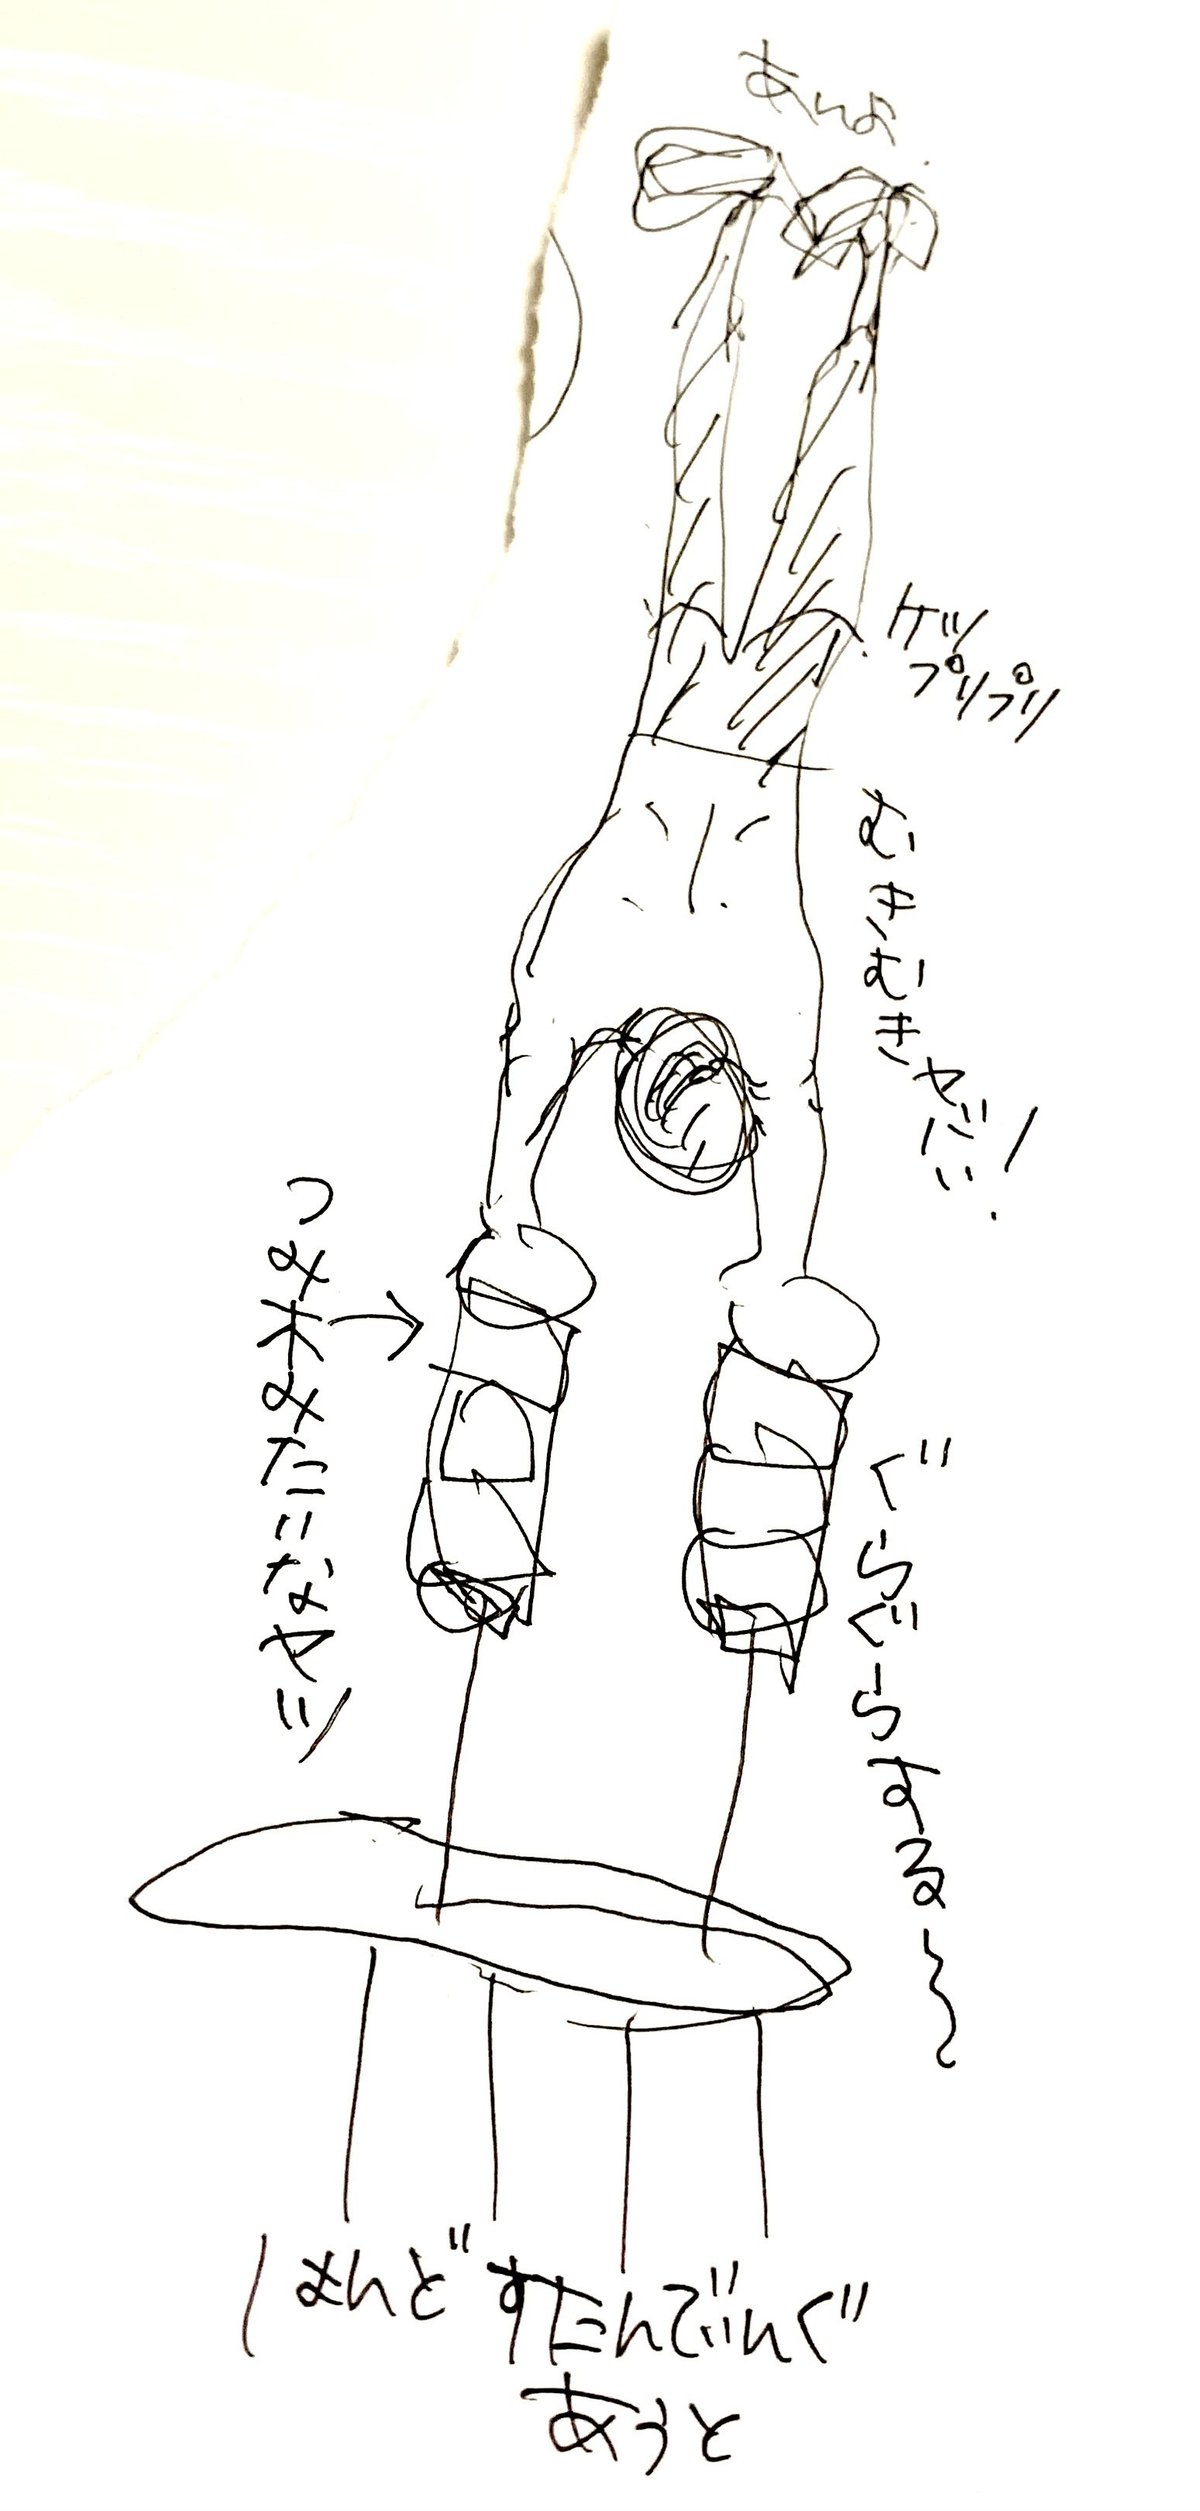 あんよ
ケツ
プリプリ
むきむき
つみ木みたいなヤツ
ぐらぐらする〜
はんどすたんでぃんぐ
あうと